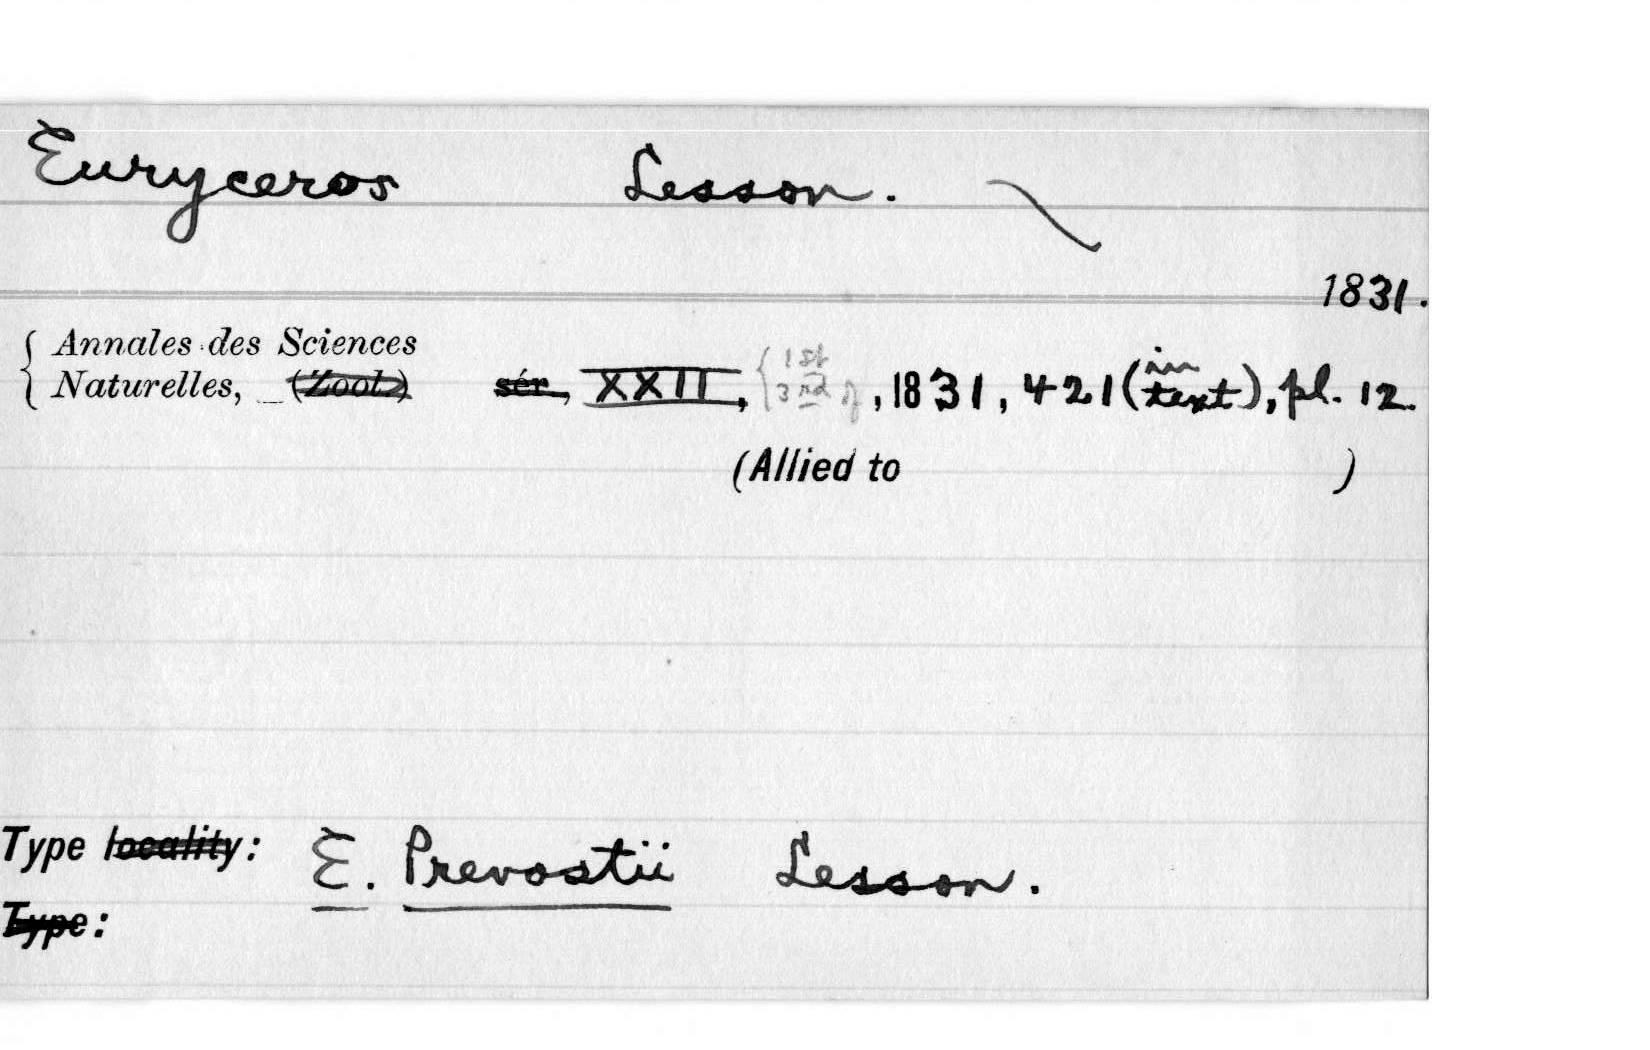 Euryceros Lesson.
1831.
Annales des Sciences
Naturelles, (Zool.) sér., XXII, 1st 3rd, 1831, 421 (in text), pl. 12.
(Allied to )
Type locality: E. Prevostii Lesson.
Type: